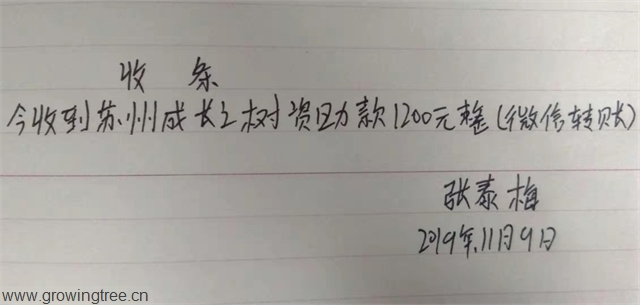 收条
今收到苏州成长之树资助款1200元整(微信转账)
张泰梅
2019年11月9日
www.growingtree.cn